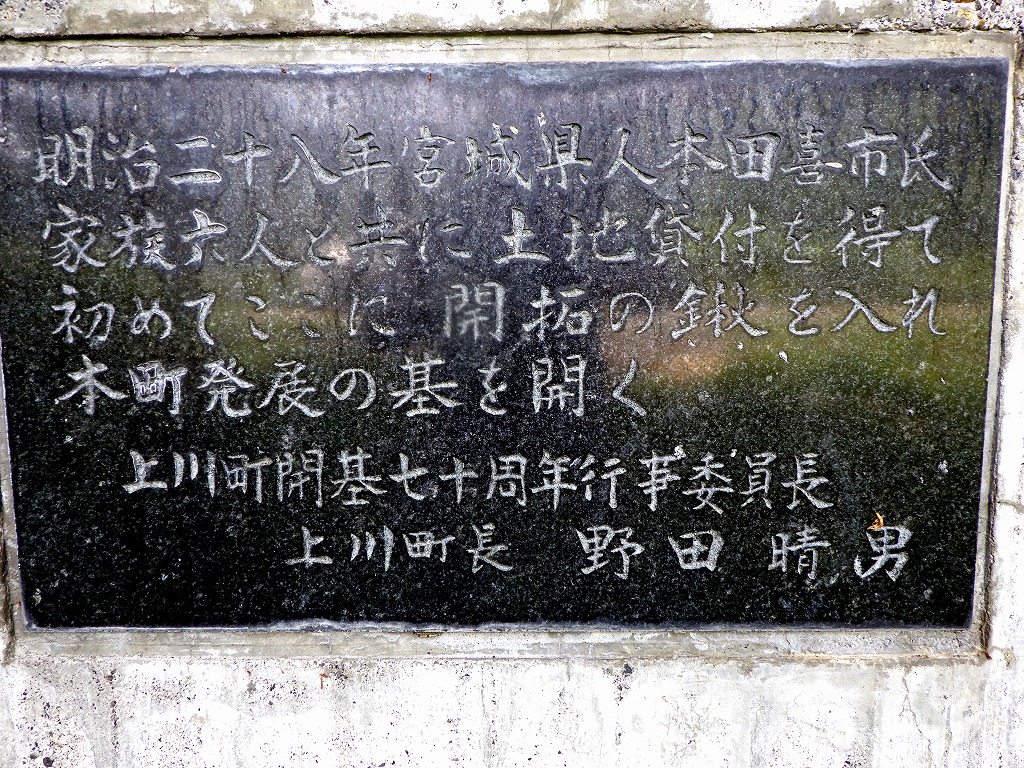 明治二十八年宮城県人本田喜市氏
家族六人と共に土地貸付を得て
初めてここに開拓の鍬を入れ
本町発展の基を開く
上川町開基七十周年行事委員長
上川町長 野田晴男